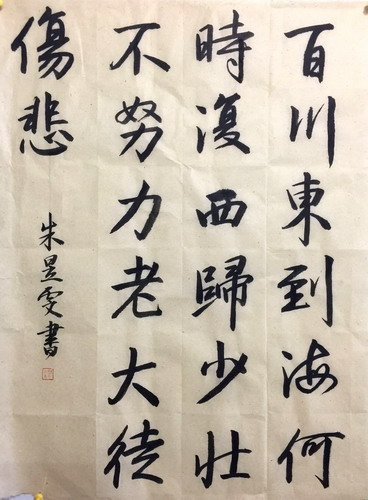 百川東到海何
時復西歸少壯
不努力老大徒
傷悲
朱昱雯書